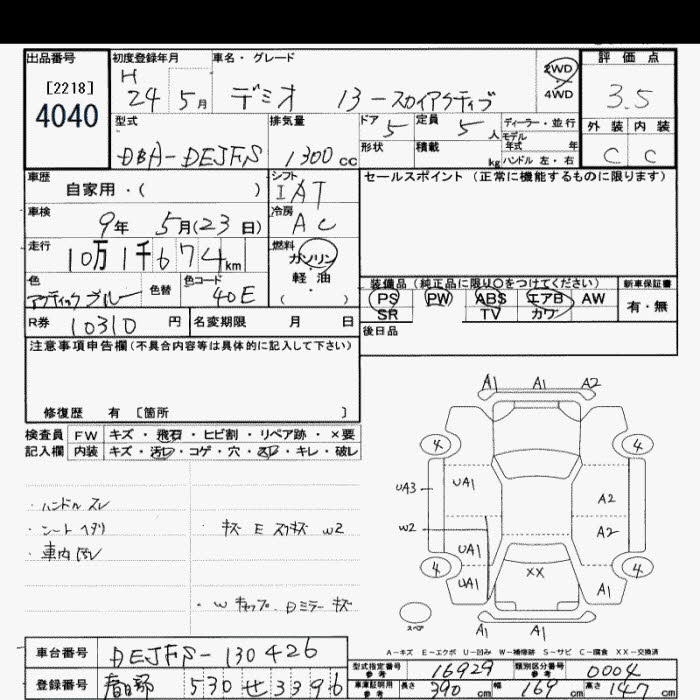 出品番号
[2218]
4040
初度登録年月
H 24 5月
車名・グレード
デミオ 13-スカイアクティブ
2WD
4WD
評価点
3.5
外装 内装
C C
型式
DBA-DEJFS
排気量
1300cc
ドア 5
定員 5人
形状
積載 kg
ディーラー・並行
モデル年式 年
ハンドル 左・右
車歴
自家用・( )
シフト
IAT
車検
9年 5月(23日)
冷房
AC
走行
10万1千674km
燃料
ガソリン
軽・油
( )
色
アクティックブルー
色替
色コード
40E
R券 10310円
名変期限 月 日
セールスポイント(正常に機能するものに限ります)
装備品(純正品に限り○をつけてください)
新車保証書
PS PW ABS エアB AW
SR TV カワ
有・無
後日品
注意事項申告欄(不具合内容等は具体的に記入して下さい)
修復歴 有 〔箇所 〕
検査員記入欄
FW キズ・飛石・ヒビ割・リペア跡・×要
内装 キズ・汚レ・コゲ・穴・スレ・キレ・破レ
・ハンドルスレ
・シートヘタリ
・車内汚レ
キズ E スリキズ W2
・Wキャップ. Dミラーキズ
A1 A1 A2
4 4
UA3 UA1 A2
W2 UA1 A2
4 4
UA1 XX A1
A1 A1
スペア
A-キズ E-エクボ U-凹み W-補修跡 S-サビ C-腐食 XX-交換済
車台番号 DEJFS-130426
登録番号 春日部 530 せ 3396
型式指定番号 参考 16929
類別区分番号 参考 0004
車庫証明用 参考 長さ 390cm 幅 169cm 高さ 147cm